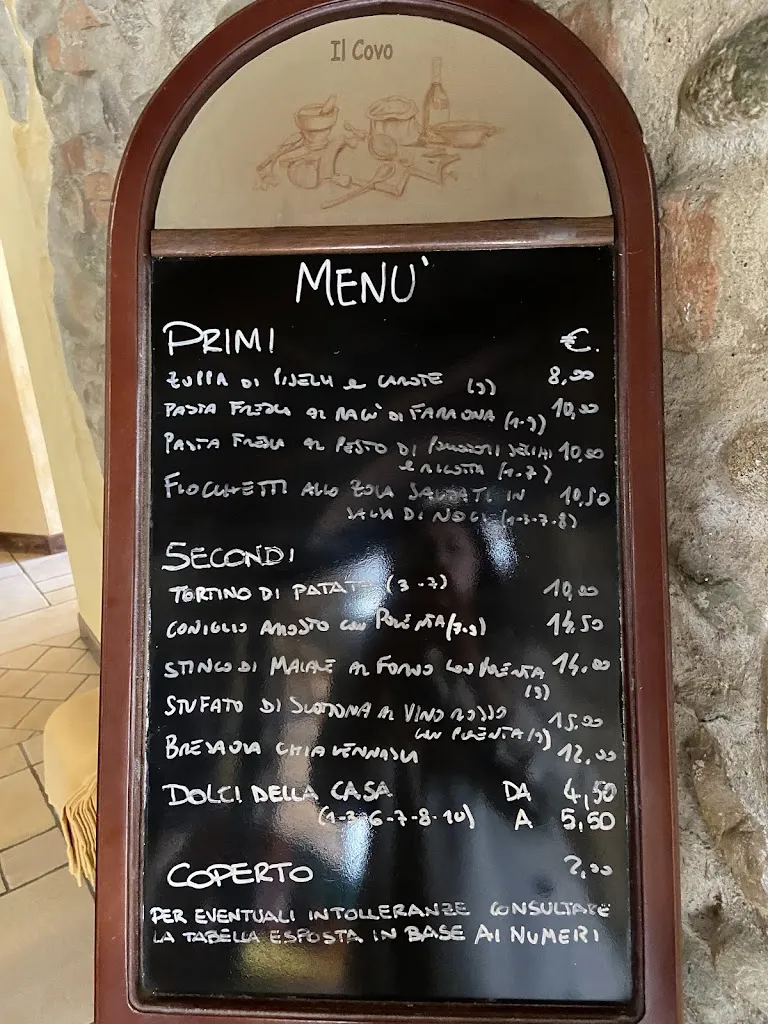 Il Covo
MENU'
PRIMI €.
ZUPPA DI PISELLI e CAROTE (9) 8,00
PASTA FRESCA AL RAGÙ DI FARAONA (1-9) 10,00
PASTA FRESCA AL PESTO DI POMODORI SECCHI 10,00
e RICOTTA (1-7)
FIOCCHETTI ALLO ZOLA SALTATI IN 10,50
SALSA DI NOCI (1-3-7-8)
SECONDI
TORTINO DI PATATE (3-7) 10,00
CONIGLIO ARROSTO CON POLENTA (7-9) 14,50
STINCO DI MAIALE AL FORNO CON POLENTA 14,00
(9)
STUFATO DI SCOTTONA AL VINO ROSSO 15,00
CON POLENTA (9)
BRESAOLA CHIAVENNASCA 12,00
DOLCI DELLA CASA DA 4,50
(1-3-6-7-8-10) A 5,50
COPERTO 2,00
PER EVENTUALI INTOLLERANZE CONSULTARE
LA TABELLA ESPOSTA IN BASE AI NUMERI